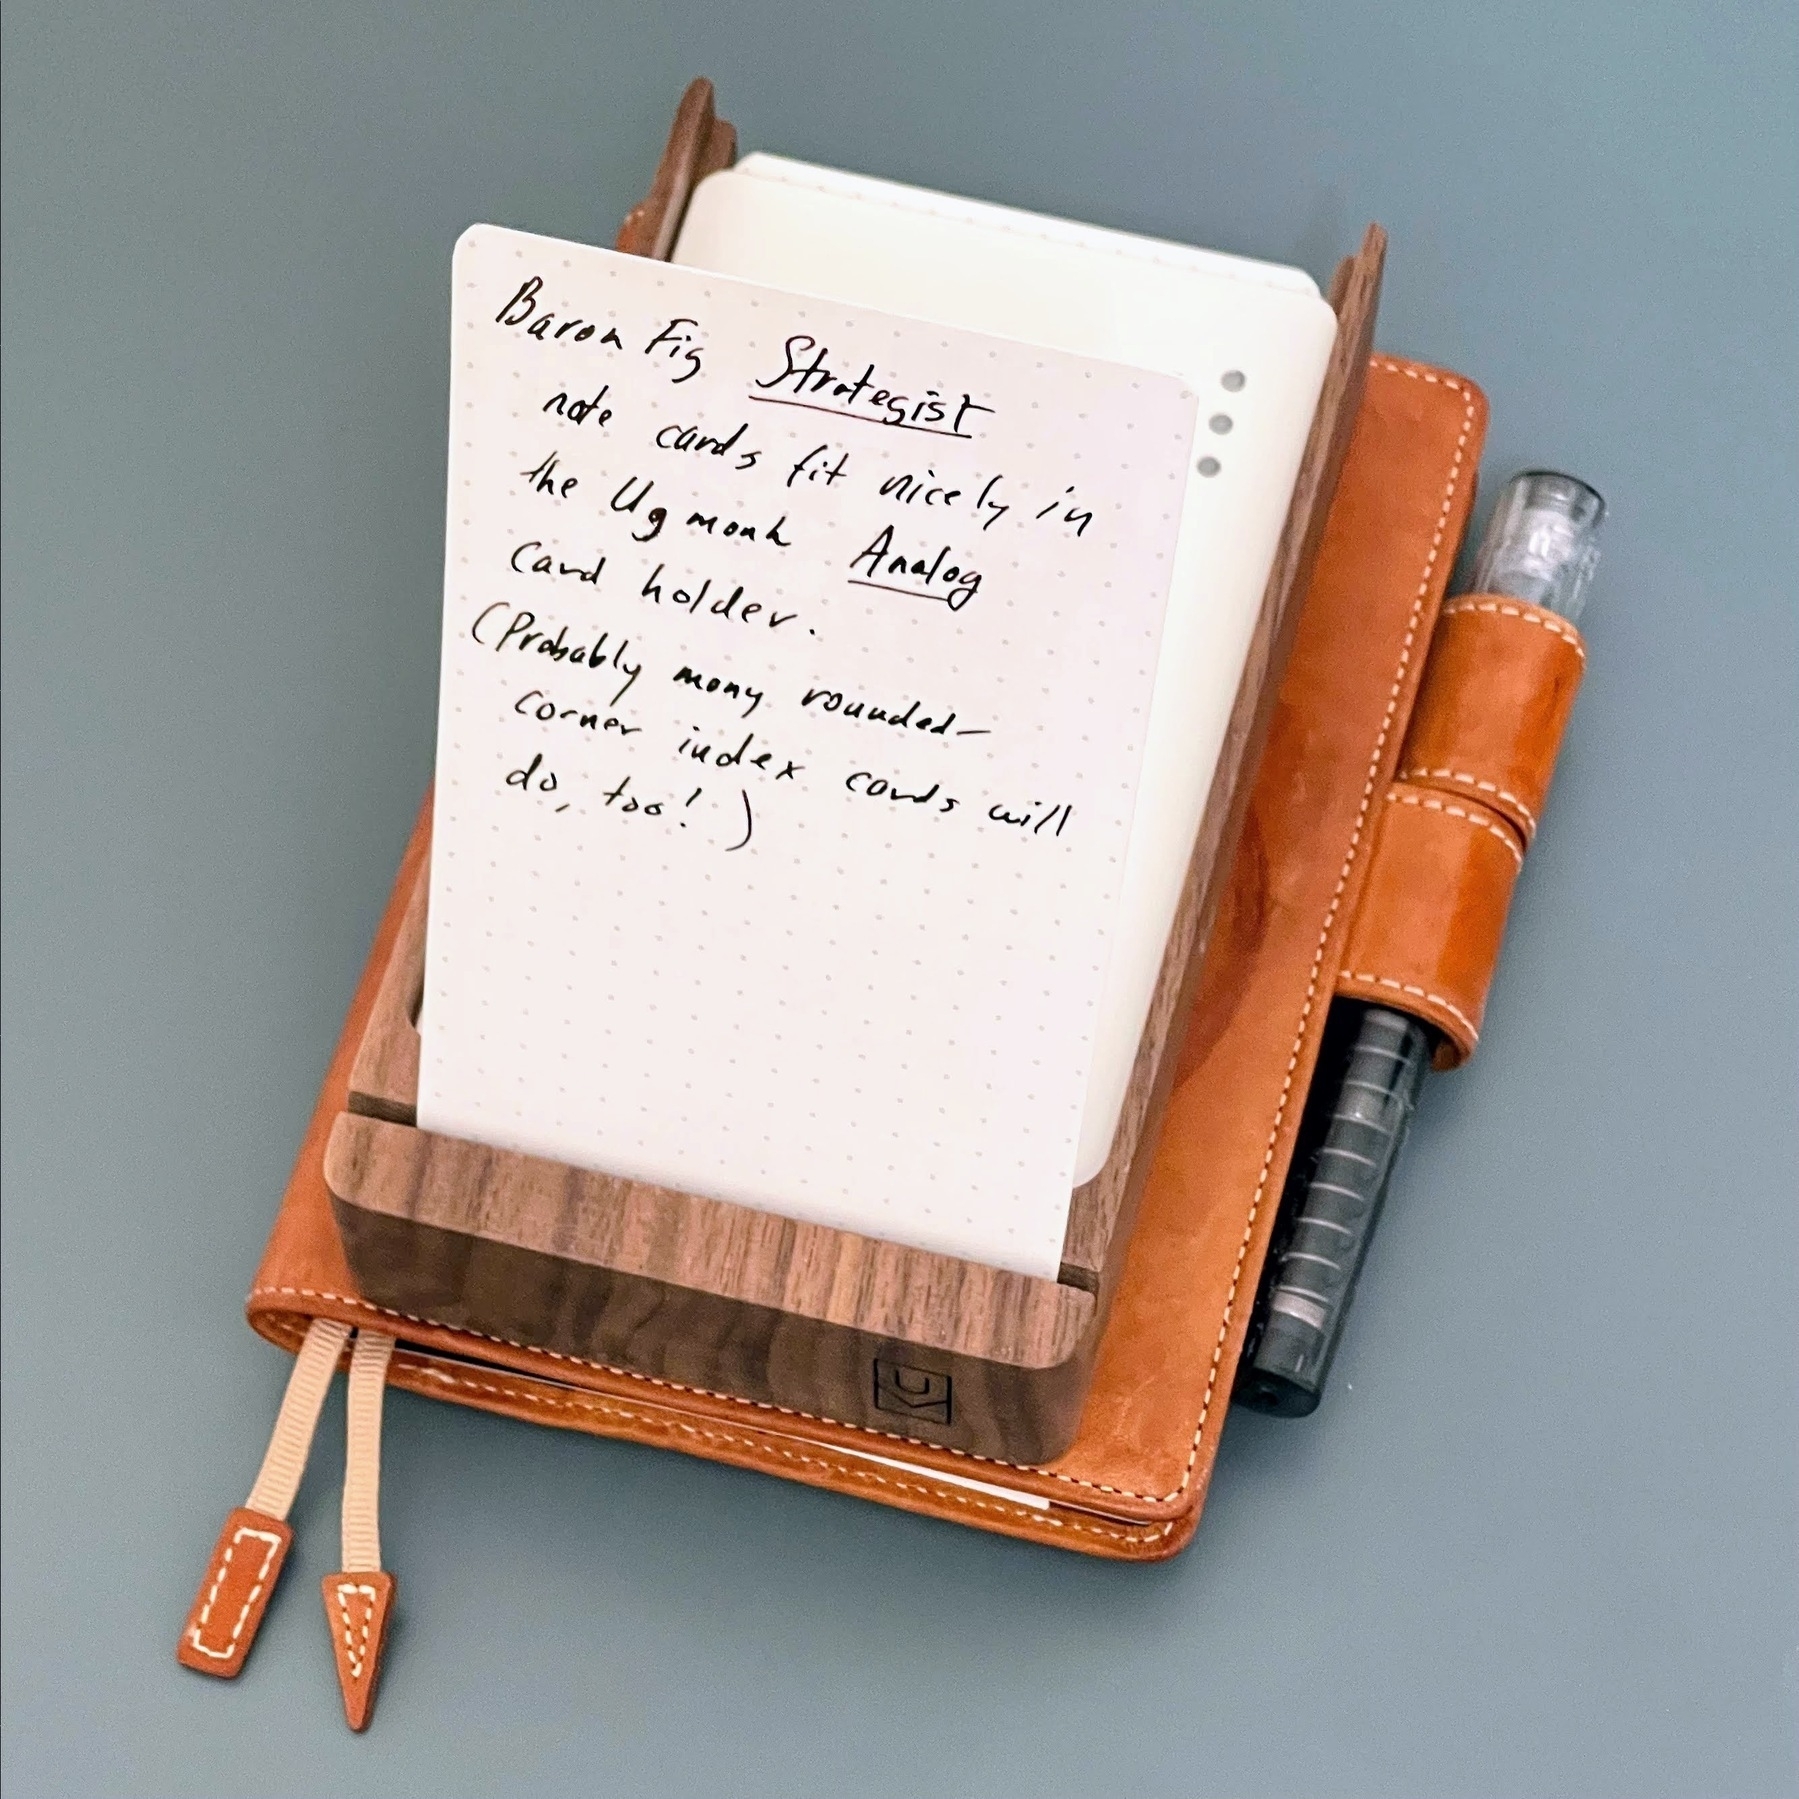 Baron Fig Strategist
note cards fit nicely in
the Ugmonk Analog
card holder.
(Probably many rounded-
corner index cards will
do, too!)
U